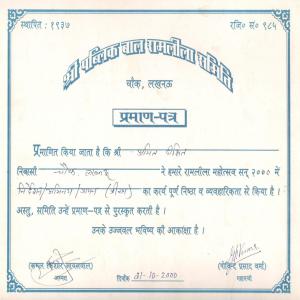 स्थापित : १९३७
रजि० सं० ९८५
श्री पब्लिक बाल रामलीला समिति
चौक, लखनऊ
प्रमाण-पत्र
प्रमाणित किया जाता है कि श्री अमित दीक्षित
निवासी चौक लखनऊ ने हमारे रामलीला महोत्सव सन् २००० में
निर्देशन/अभिनय/ का कार्य पूर्ण निष्ठा व व्यवहारिकता से किया है।
अस्तु, समिति उन्हें प्रमाण-पत्र से पुरस्कृत करती है।
उनके उज्जवल भविष्य की आकांक्षा है।
अध्यक्ष
दिनाँक 31-10-2000
(गोविन्द प्रसाद वर्मा)
महामंत्री